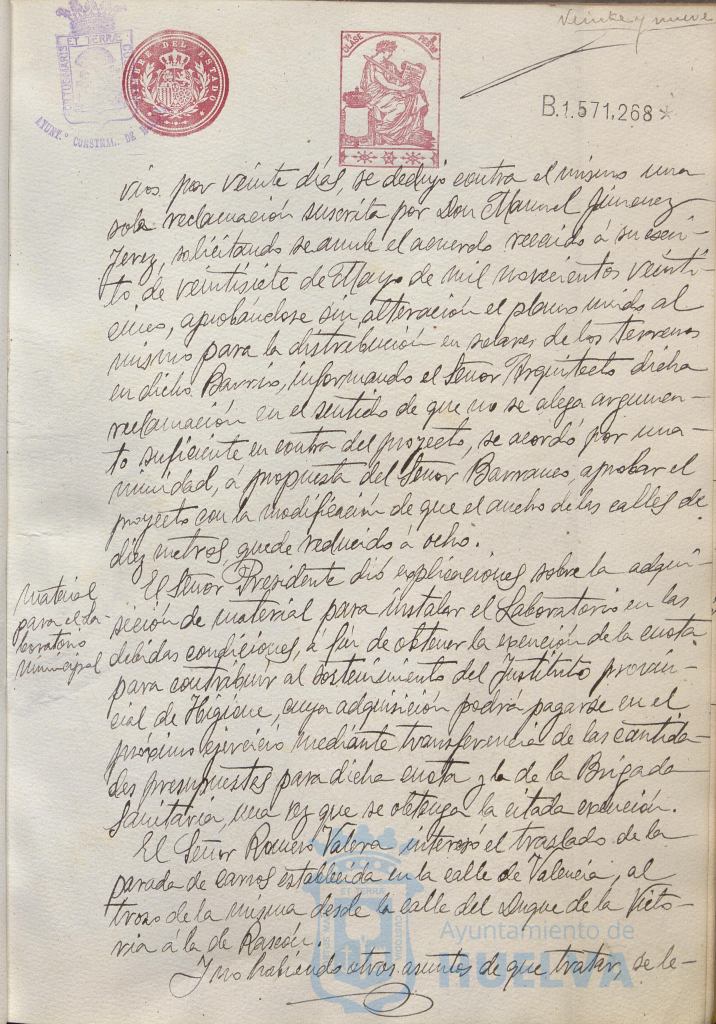 Veinte y nueve
PORTUS MARIS ET TERRÆ CUSTODIA
AYUNT.º CONSTNAL. DE
TIMBRE DEL ESTADO
CLASE
B.1.571,268*
vios por veinte días, se dedujo contra el mismo una
sola reclamación suscrita por Don Manuel Jimenez
Jerez, solicitando se anule el acuerdo recaido á su escri-
to de veintisiete de Mayo de mil novecientos veinti-
cinco, aprobándose sin alteración el plano unido al
mismo para la distribución en solares de los terrenos
en dicho Barrio, informando el Señor Arquitecto dicha
reclamación en el sentido de que no se alega argumen-
to suficiente en contra del proyecto, se acordó por una-
nimidad, á propuesta del Señor Barranco, aprobar el
proyecto con la modificación de que el ancho de las calles de
diez metros quede reducido á ocho.
Material
para el La-
boratorio
Municipal
El Señor Presidente dió explicaciones sobre la adqui-
sición de material para instalar el Laboratorio en las
debidas condiciones, á fin de obtener la exención de la cuota
para contribuir al sostenimiento del Instituto provin-
cial de Higiene, cuya adquisición podrá pagarse en el
próximo ejercicio mediante transferencia de las cantida-
des presupuestas para dicha cuota y la de la Brigada
Sanitaria, una vez que se obtenga la citada exención.
El Señor Romero Valera interesó el traslado de la
parada de carros establecida en la calle de Valencia, al
trozo de la misma desde la calle del Duque de la Victo-
ria á la de Rascón.
Y no habiendo otros asuntos de que tratar, se le-
Ayuntamiento de
HUELVA